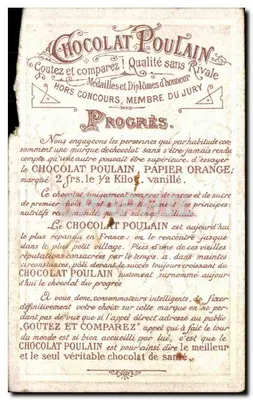 CHOCOLAT POULAIN
Goutez et comparez! Qualité sans Rivale
Médailles et Diplômes d'honneur
HORS CONCOURS, MEMBRE DU JURY
PROGRÈS.
Nous engageons les personnes qui par habitude con-
somment une marque de chocolat sans s'être jamais rendu
compte qu'une autre pouvait être supérieure, d'essayer
le CHOCOLAT POULAIN, PAPIER ORANGE,
marqué 2 frs. le ½ Kilog. vanillé.
Ce chocolat, uniquement composé de cacao et de sucre
de premier choix principes
nutritifs
Le CHOCOLAT POULAIN est aujourd'hui
le plus répandu en France; on le rencontre jusque
dans le plus petit village. Plus d'une de ces vieilles
réputations consacrées par le temps a dans maintes
circonstances, pâli devant le succès toujours croissant du
CHOCOLAT POULAIN justement surnommé aujour-
d'hui le chocolat du progrès
A vous donc, consommateurs intelligents, de fixer
définitivement votre choix sur cette marque en ne per-
dant pas de vue que si l'appel direct adressé au public
„GOUTEZ ET COMPAREZ" appel qui a fait le tour
du monde est si bien accueilli par lui, c'est que le
CHOCOLAT POULAIN est pour ainsi dire le meilleur
et le seul véritable chocolat de santé.